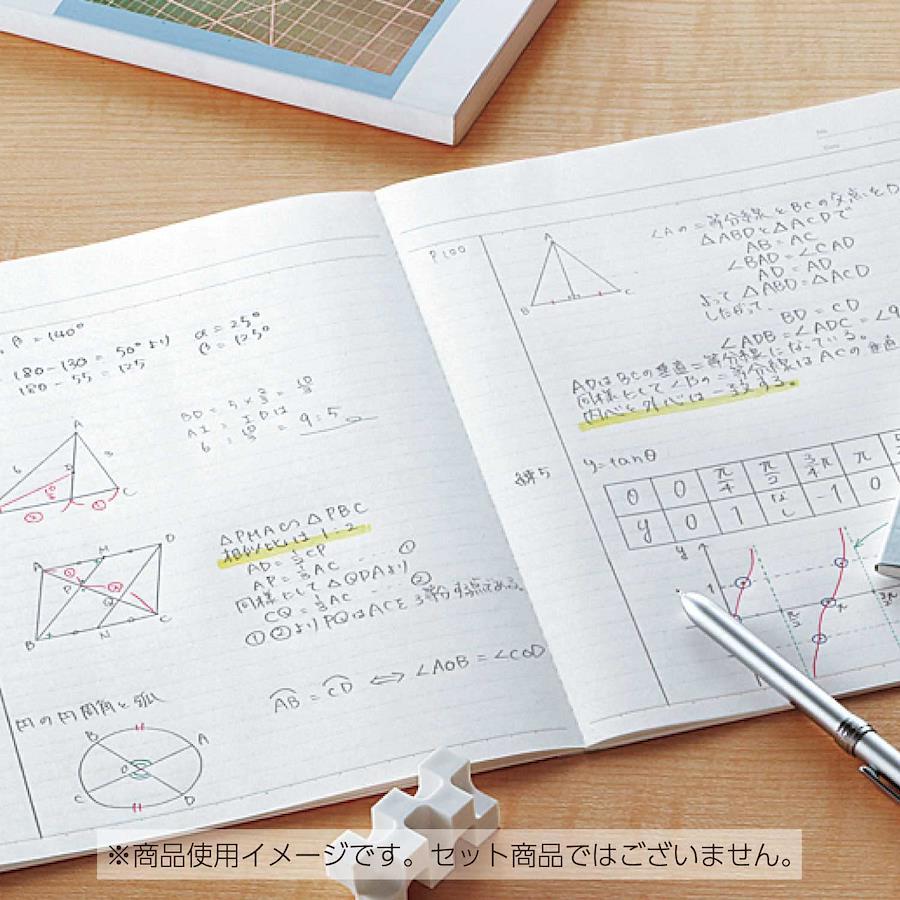 β = 140°
180-130 = 50°より
180-55 = 125
α = 25°
β = 125°
BD = 5 × 2/3 = 10/3
AI : IDは
6 : 10/3 = 9:5
A
6
3
C
△PMA∽△PBC
相似比は1:2
AD = 1/3CP
AP = 1/3AC ---- ①
同様にして△QDAより
CQ = 1/3AC --- ②
①②よりPQはACを3等分する点である。
A
M
D
P
Q
B
N
C
円の円周角と弧
AB = CD ⇔ ∠AOB = ∠COD
B
A
O
C
D
No.
Date
P100
A
B
C
∠Aの二等分線とBCの交点をD
△ABDと△ACDで
AB = AC
∠BAD = ∠CAD
AD = AD
よって △ABD = △ACD
したがって、
BD = CD
∠ADB = ∠ADC = ∠9
ADはBCの垂直二等分線になっている。
同様にして∠Bの二等分線はACの垂直
内心と外心は一致する。
練5
y=tanθ
θ 0 π/4 π/2 3/4π π
y 0 1 なし -1 0
y
1
π/2
π
3/2π
※商品使用イメージです。セット商品ではございません。